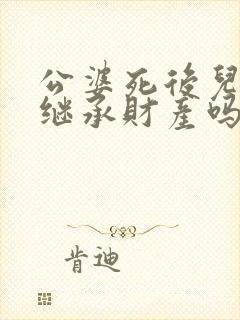 公婆死後兒
继承財產吗
肯迪